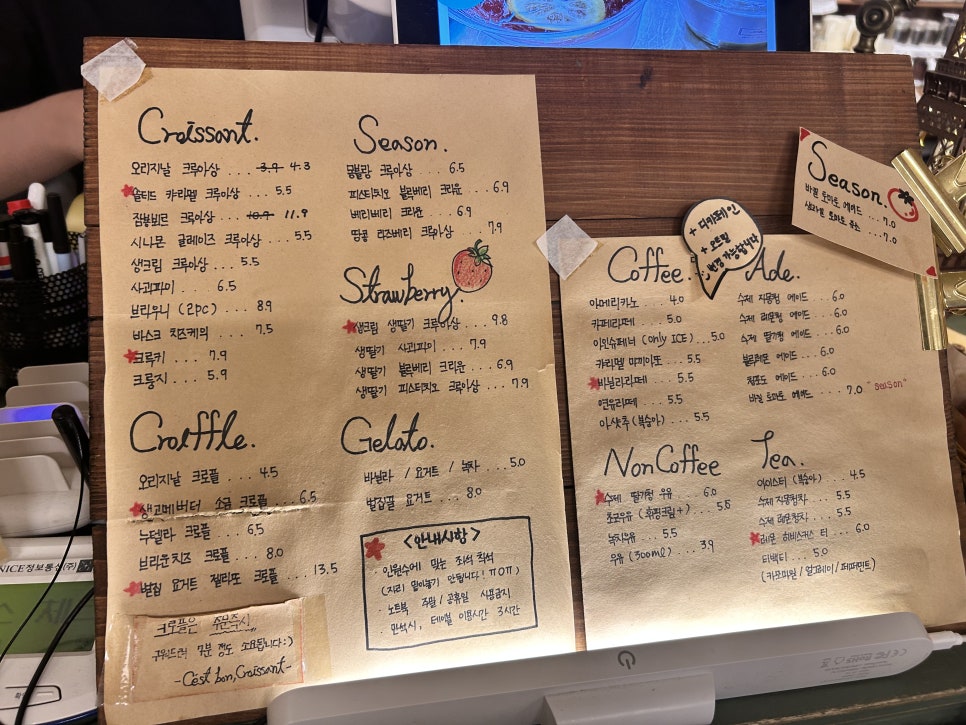 Croissant.
오리지날 크루아상 ... 3.9 4.3
솔티드 카라멜 크루아상 ... 5.5
잠봉뵈르 크루아상 ... 10.9 11.9
시나몬 글레이즈 크루아상 ... 5.5
생크림 크루아상 ... 5.5
사과파이 ... 6.5
브라우니 (2pc) ... 8.9
바스크 치즈케익 ... 7.5
크루키 ... 7.9
크룽지 ... 5.9
Croiffle.
오리지날 크로플 ... 4.5
앵커메버터 소금 크로플 ... 6.5
누텔라 크로플 ... 6.5
브라운치즈 크로플 ... 8.0
벌집 요거트 젤라또 크로플 ... 13.5
크로플은 주문즉시,
구워드려 7분 정도 소요됩니다:)
-C'est bon, Croissant-
Season.
몽블랑 크루아상 ... 6.5
피스타치오 블랙베리 크라운 ... 6.9
베리베리 크라운 ... 6.9
땅콩 라즈베리 크루아상 ... 7.9
Strawberry.
생크림 생딸기 크루아상 ... 9.8
생딸기 사과파이 ... 7.9
생딸기 블랙베리 크라운 ... 8.9
생딸기 피스타치오 크루아상 ... 7.9
Gelato.
바닐라 / 요거트 / 녹차 ... 5.0
벌집꿀 요거트 ... 8.0
<안내사항>
· 인원수에 맞는 좌석 착석
(자리 맡아놓기 안됩니다! ㅠㅠ)
· 노트북 주말/공휴일 사용금지
· 만석시, 테이블 이용시간 2시간
Coffee.
아메리카노 ... 4.0
카페라떼 ... 5.0
아인슈페너 (only ICE) ... 5.0
카라멜 마끼아또 ... 5.5
바닐라라떼 ... 5.5
연유라떼 ... 5.5
아샷추 (복숭아) ... 5.5
+ 디카페인
+ 오트밀
변경 가능합니다
Ade.
수제 자몽청 에이드 ... 6.0
수제 레몬청 에이드 ... 6.0
수제 딸기청 에이드 ... 6.0
블루레몬 에이드 ... 6.0
청포도 에이드 ... 6.0
바질 토마토 에이드 ... 7.0 "season"
NonCoffee
수제 딸기청 우유 ... 6.0
초코우유 (휘핑크림+) ... 5.5
녹차우유 ... 5.5
우유 (300ml) ... 3.9
Tea.
아이스티 (복숭아) ... 4.5
수제 자몽청차 ... 5.5
수제 레몬청차 ... 5.5
레몬 히비스커스 티 ... 6.0
티백티 ... 5.0
(카모마일 / 얼그레이 / 페퍼민트)
Season.
바질 토마토 에이드 ... 7.0
생과일 토마토 쥬스 ... 7.0
NICE정보통신(주)